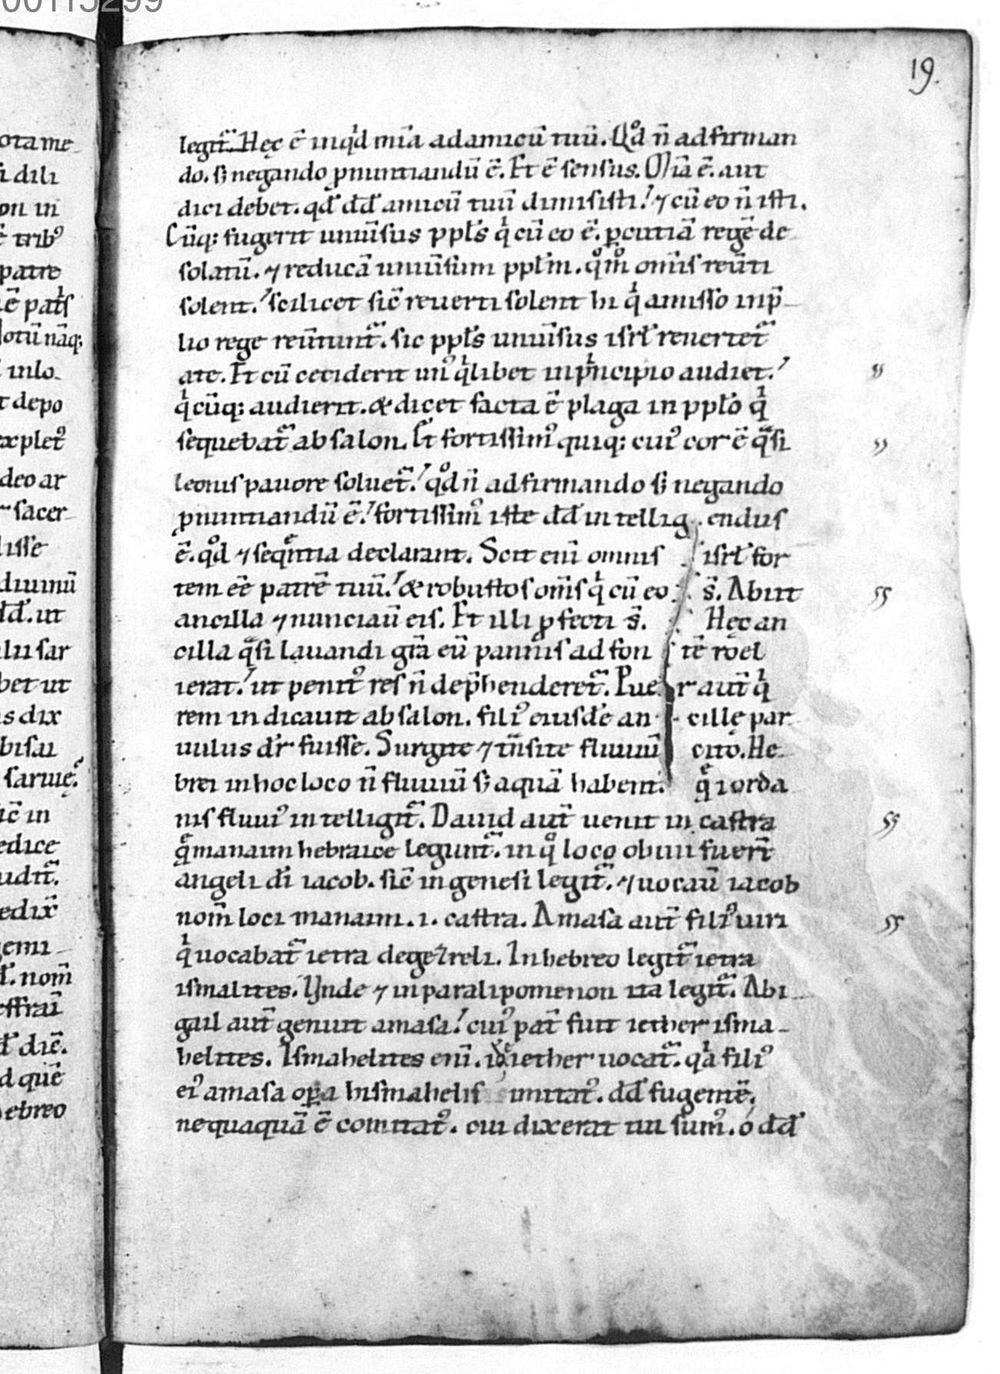 00115299
19.
legit̄. Hęc ē inq̇d mīa ad amicū tuū. Q̊d n̄ adfirman
do. s; negando p̱nuntiandū ē. Et ē sensus. Mīa ē. aut
dici debet. qđ dd̄ amicū tuū dimisisti? ⁊ cū eo n̄ isti.
Cūq; fugerit uniūsus ppl̄s q̇ cū eo ē. p̱cutiā regē de
solatū. ⁊ reducā uniūsum ppl̄m. q̊m̊ om̄s reūti
solent. scilicet sic̄ reuerti solent hi q̇ amisso in p̄
lio rege reūtunt̄. sic ppl̄s uniūsus isrl̄ reuertet̄
ad te. Et cū ceciderit un᾽ q̇libet in ṗncipio audiet.
q̇cūq; audierit. & dicet facta ē plaga in ppl̄o q̇
sequebat̄ absalon. Et fortissim᾽ quiq; cui᾽ cor ē q̄si
leonis pauore soluet̄. q̊d n̄ adfirmando s; negando
p̱nuntiandū ē. fortissim᾽ iste dd̄ intellig endus
ē. q̊d ⁊ sequentia declarant. Scit enī omnis isrl̄ for
tem eē patrē tuū. & robustos om̄s q̇ cū eo s̄. Abiit
ancilla ⁊ nunciaū eis. Et illi p̱fecti s̄. Hęc an
cilla q̄si lauandi grā eū pannis ad fon tē roel
ierat. ut penit᾽ res n̄ dep̄henderet̄. Pue r aut̄ q̇
rem indicauit absalon. fili᾽ eiusdē an cillę par
uulus dr̄ fuisse. Surgite ⁊ tn̄site fluuiū cito. He
brei in hoc loco n̄ fluuiū s; aquā habent. q̄ iorda
nis fluui᾽ intelligit̄. Dauid aut̄ uenit in castra
q̄ manaim hebraice legunt̄. in q̊ loco obuii fuer̄t
angeli dī iacob. sic̄ in genesi legit̄. ⁊ uocaū iacob
nom̄ loci manaim. i. castra. Amasa aut̄ fili᾽ uiri
q̇ uocabat̄ ietra de gezreli. In hebreo legit̄ ietra
ismalites. Unde ⁊ in paralipomenon ita legit̄. Abi
gail aut̄ genuit amasa. cui᾽ pat̄ fuit iether isma
helites. Ismahelites enī. iether uocat̄. q̇a fili᾽
ei᾽ amasa op̱a hismahelis imitat᾽. dd̄ fugentē.
nequaquā ē comitat᾽. cui dixerat tui sum᾽. o dd̄